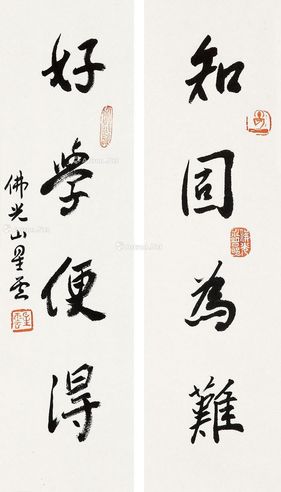 知固為難
好學便得
佛光山星雲